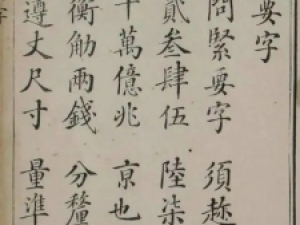 要字
問緊要字 須
貳叁肆伍 陸柒
千萬億兆 亰也
衡觔兩錢 分釐
遵丈尺寸 量準
字